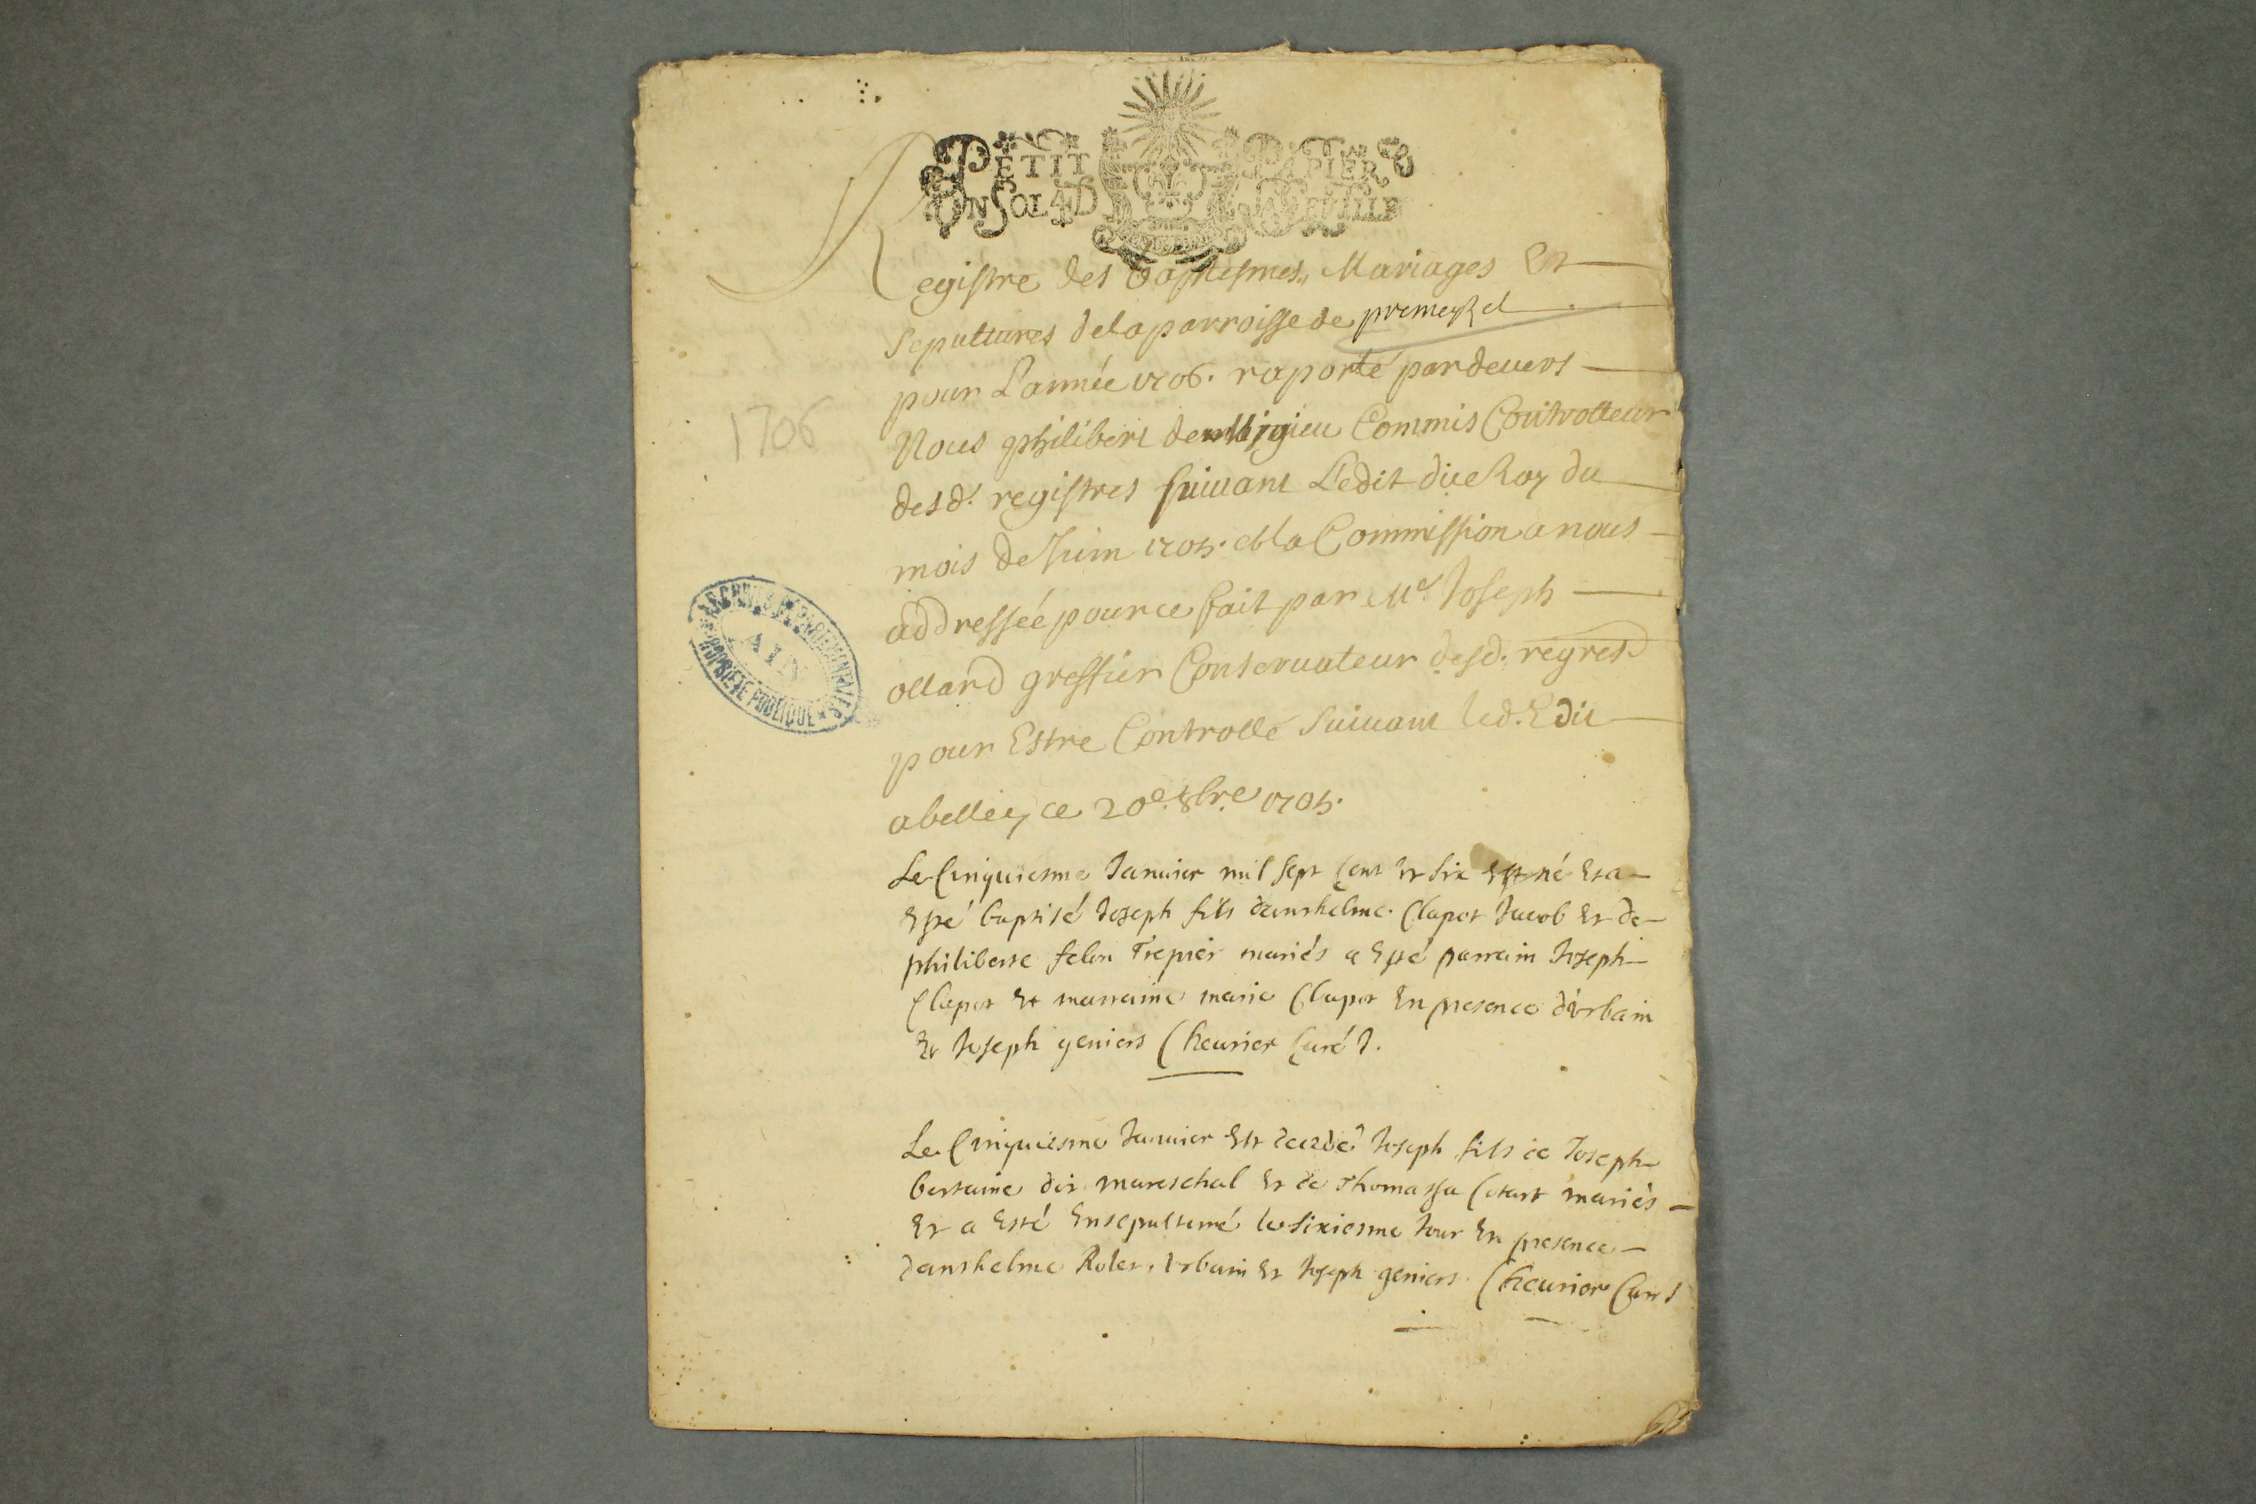 PETIT PAPIER
UN SOL 4 D LA FEUILLE
Registre des baptesmes, Mariages Et
Sepultures de la parroisse de premeyzel
pour L'année 1706. raporté pardevers
Nous philibert de Commis Controlleur
desd. registres suivant L'edit du Roy du
mois de Juin 1705. et la Commission a nous
addressée pour ce fait par Me Joseph
ollard greffier Conservateur desd. regres
pour Estre Controllé suivant led. Edit
a belley ce 20e 8bre 1705.
1706
ARCHIVES DÉPARTEMENTALES
AIN
PROPRIÉTÉ PUBLIQUE
Le Cinquiesme Janvier mil sept cent et six Est né et a
Esté baptisé Joseph fils danthelme Clapot Jacob et de
philiberte felon Trepier mariés a Esté parrain Joseph
Clapot et marraine marie Clapot En presence d'vrbain
et Joseph geniers Cheurier Curé
Le Cinquiesme Janvier Est decedé Joseph fils de Joseph
bertaine dit mareschal et de Thomassa Cotart mariés
et a Esté Ensepulturé le sixiesme Jour En presence
danthelme Rolet, vrbain et Joseph geniers Cheurier Curé